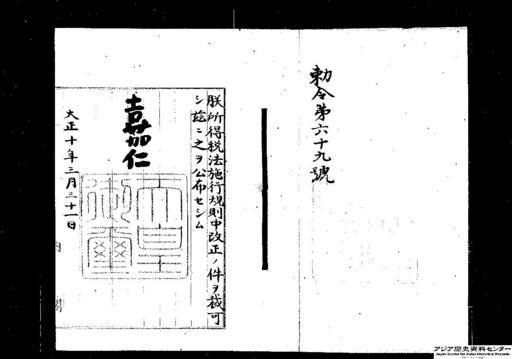 勅令第六十九號
朕所得税法施行規則中改正ノ件ヲ裁可
シ茲ニ之ヲ公布セシム
嘉仁
天皇御璽
大正十年三月三十一日
内閣
アジア歴史資料センター
Japan Center for Asian Historical Records